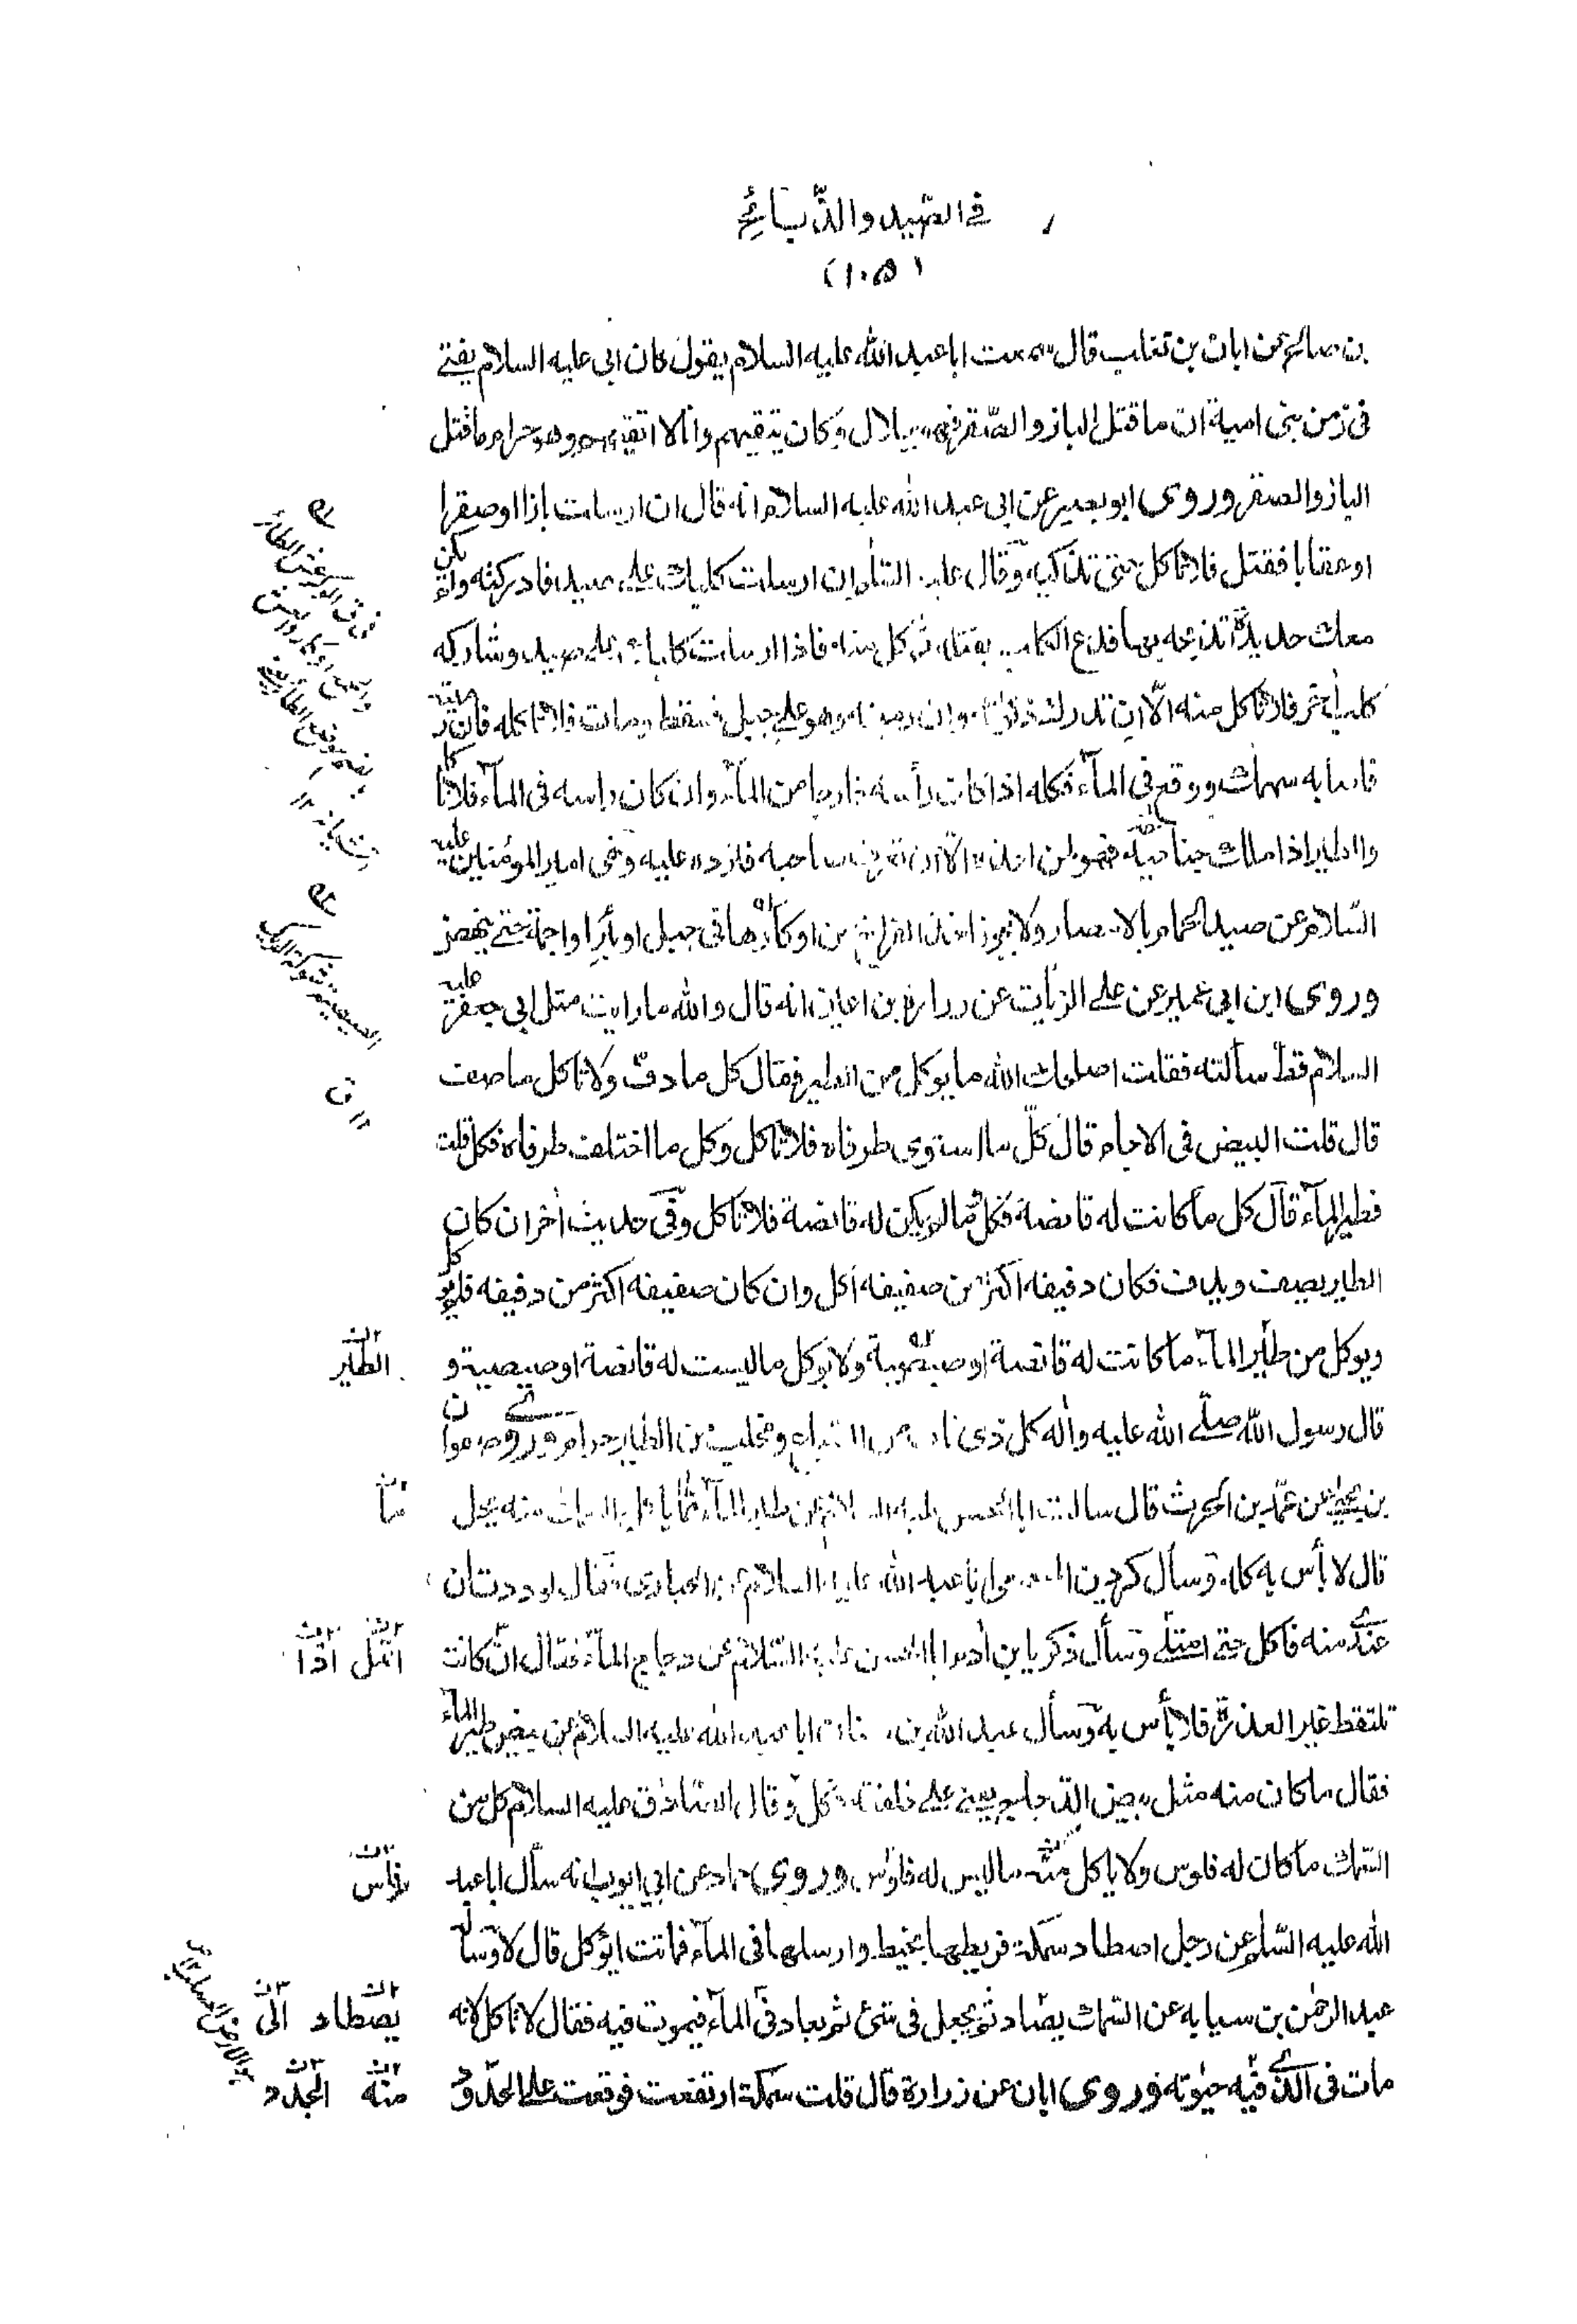 في الصّيد والذّبائح
(١٠٥)
بن صالح عن ابان بن تغلب قال سمعت ابا عبد الله عليه السلام يقول كان ابي عليه السلام يفتي
في زمن بني امية ان ما قتل الباز والصّقر فهو حلال وكان يتقيهم وانا لا اتقيهم وهو حرام ما قتل
الباز والصقر وروى ابو بصير عن ابي عبد الله عليه السلام انه قال ان ارسلت بازا او صقرا
او عقابا فقتل فلا تاكل حتى تذكيه وقال عليه السّلام ان ارسلت كلبك على صيد فادركته ولم يكن
معك حديدة تذبحه بها فدع الكلب يقتله ثم كل منه فاذا ارسلت كلبك على صيد وشاركه
كلب اخر فلا تاكل منه الّا ان تدرك ذكوته وان رميته وهو على جبل فسقط ومات فلا تاكله فان رميته
فاصابه سهمك ووقع في المآء فكله اذا كان رأسه خارجا من المآء وان كان راسه في المآء فلا تاكله
والطير اذا ملك جناحيه فهو لمن اخذه الّا ان يعرف صاحبه فيرده عليه ونهى امير المؤمنين عليه
السّلام عن صيد الحمام بالامصار ولا يجوز اخذ الفراخ من اوكارها في جبل او بئر او اجمة حتى ينهض
وروى ابن ابي عمير عن علي الزيات عن زرارة بن اعين انه قال والله ما رايت مثل ابي جعفر عليه
السلام قط سالته فقلت اصلحك الله ما يوكل من الطير فقال كل ما دفّ ولا تاكل ما صف
قال قلت البيض في الاجام قال كلّ ما استوى طرفاه فلا تاكل وكل ما اختلف طرفاه فكل قلت
فطير المآء قال كل ما كانت له قانصة فكل وما لم يكن له قانصة فلا تاكل وفي حديث اخر ان كان
الطير يصف ويدف فكان دفيفه اكثر من صفيفه اكل وان كان صفيفه اكثر من دفيفه فلم يوكل
ويوكل من طير المآء ما كانت له قانصة او صيصية ولا يوكل ما ليست له قانصة او صيصية و
الطير
قال رسول الله صلّى الله عليه واله كل ذي ناب من السّباع ومخلب من الطير حرام وروى صفوان
بن يحيى عن محمّد بن الحرث قال سالت ابا الحسن عليه السلام عن طير المآء مما ياكل السمك منه يحل
قال لا بأس به كله وسأل كردين المسمعي ابا عبد الله عليه السلام عن الحبارى فقال لوددت ان
عندي منه فاكل حتى امتلي وسأل زكريا بن ادم ابا الحسن عليه السّلام عن دجاج المآء فقال ان كانت
اتملّ اذا
تلتقط غير العذرة فلا بأس به وسأل عبد الله بن سنان ابا عبد الله عليه السلام عن بيض طير المآء
فقال ما كان منه مثل بيض الدّجاج يعني على خلقته فكل وقال الصّادق عليه السلام كل من
السّمك ما كان له فلوس ولا ياكل منه ما ليس له فلوس وروى حماد عن ابي ايوب انه سأل ابا عبد
الله عليه السّلم عن رجل اصطاد سمكة فربطها بخيط وارسلها في المآء فماتت ايؤكل قال لا وسأله
عبد الرحمن بن سيابه عن السّمك يصاد ثم يجعل في شئ ثم يعاد في المآء فيموت فيه فقال لا تاكل لانه
يصطاد الى
مات في الذي فيه حيوته وروى ابان عن زرارة قال قلت سمكة ارتفعت فوقعت على الحدود
منه الجدد